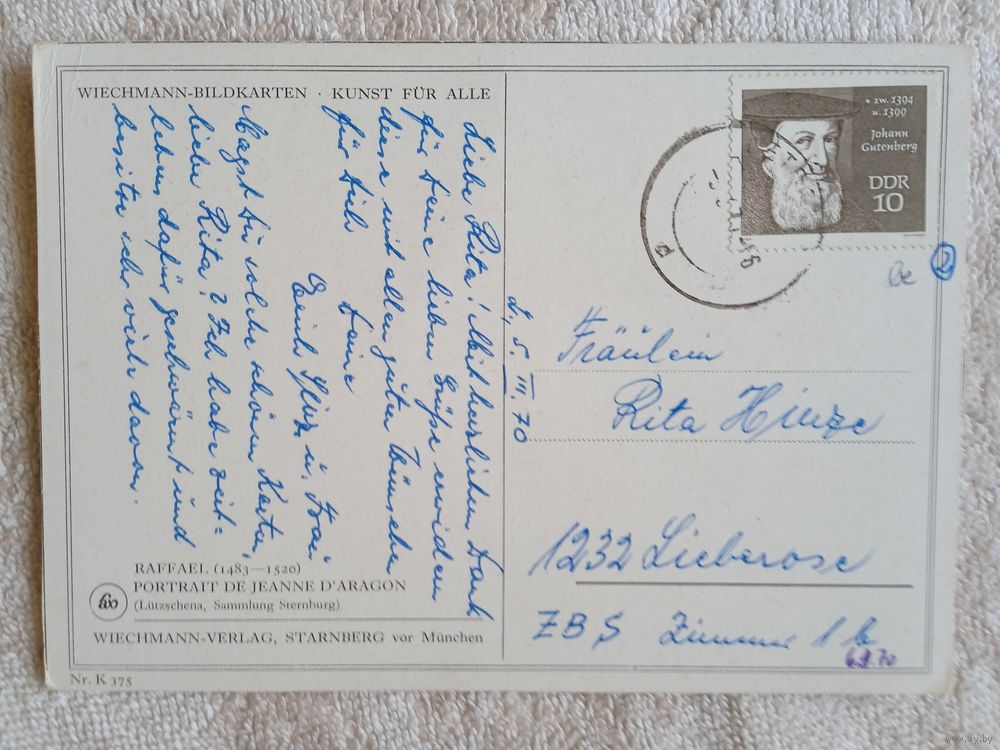 WIECHMANN-BILDKARTEN · KUNST FÜR ALLE
Liebe Rita! Mit herzlichem Dank
für Deine lieben Grüße erwidern
diese mit allen guten Wünschen
für Dich Deine
Heinz u. Frau
Magst Du solche schönen Karten,
liebe Rita? Ich habe zeit=
lebens dafür geschwärmt und
besitze sehr viele davon.
RAFFAEL (1483—1520)
PORTRAIT DE JEANNE D'ARAGON
(Lützschena, Sammlung Sternburg)
WIECHMANN-VERLAG, STARNBERG vor München
Nr. K 375
L., 5. III. 70
* zw. 1394
u. 1399
Johann
Gutenberg
DDR
10
Fräulein
Rita Hinze
1232 Lieberose
ZBS Zimmer 1 b
www.ay.by